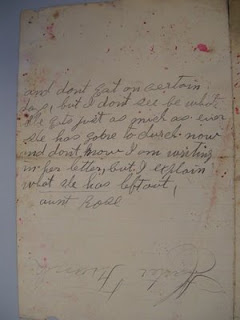 and dont eat on certain
days, but I dont see be what
she eats just as much as ever
she has gone to church now
and dont know I am writing
in her letter, but I explain
what she has left out,
aunt Rose